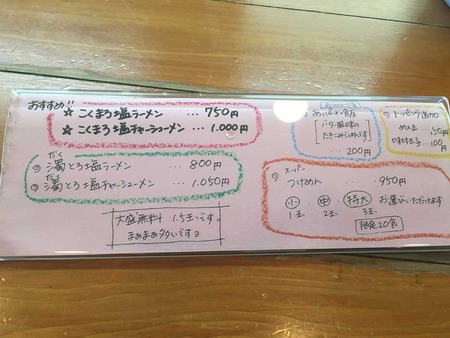 おすすめ!!
☆ こくまろ塩ラーメン … 750円
☆ こくまろ塩チャーシューメン … 1.000円
だく
濁とろ塩ラーメン … 800円
だく
濁とろ塩チャーシューメン … 1.050円
大盛無料 1.5玉です。
まぁまぁ多いですョ
バター風味の
たきこみごはんです
… 200円
トッピング
めんま
味付玉子 … 100円
スーパー
つけめん … 950円
小 中 特大 お選びいただけます
1玉 2玉 3玉
限定20食